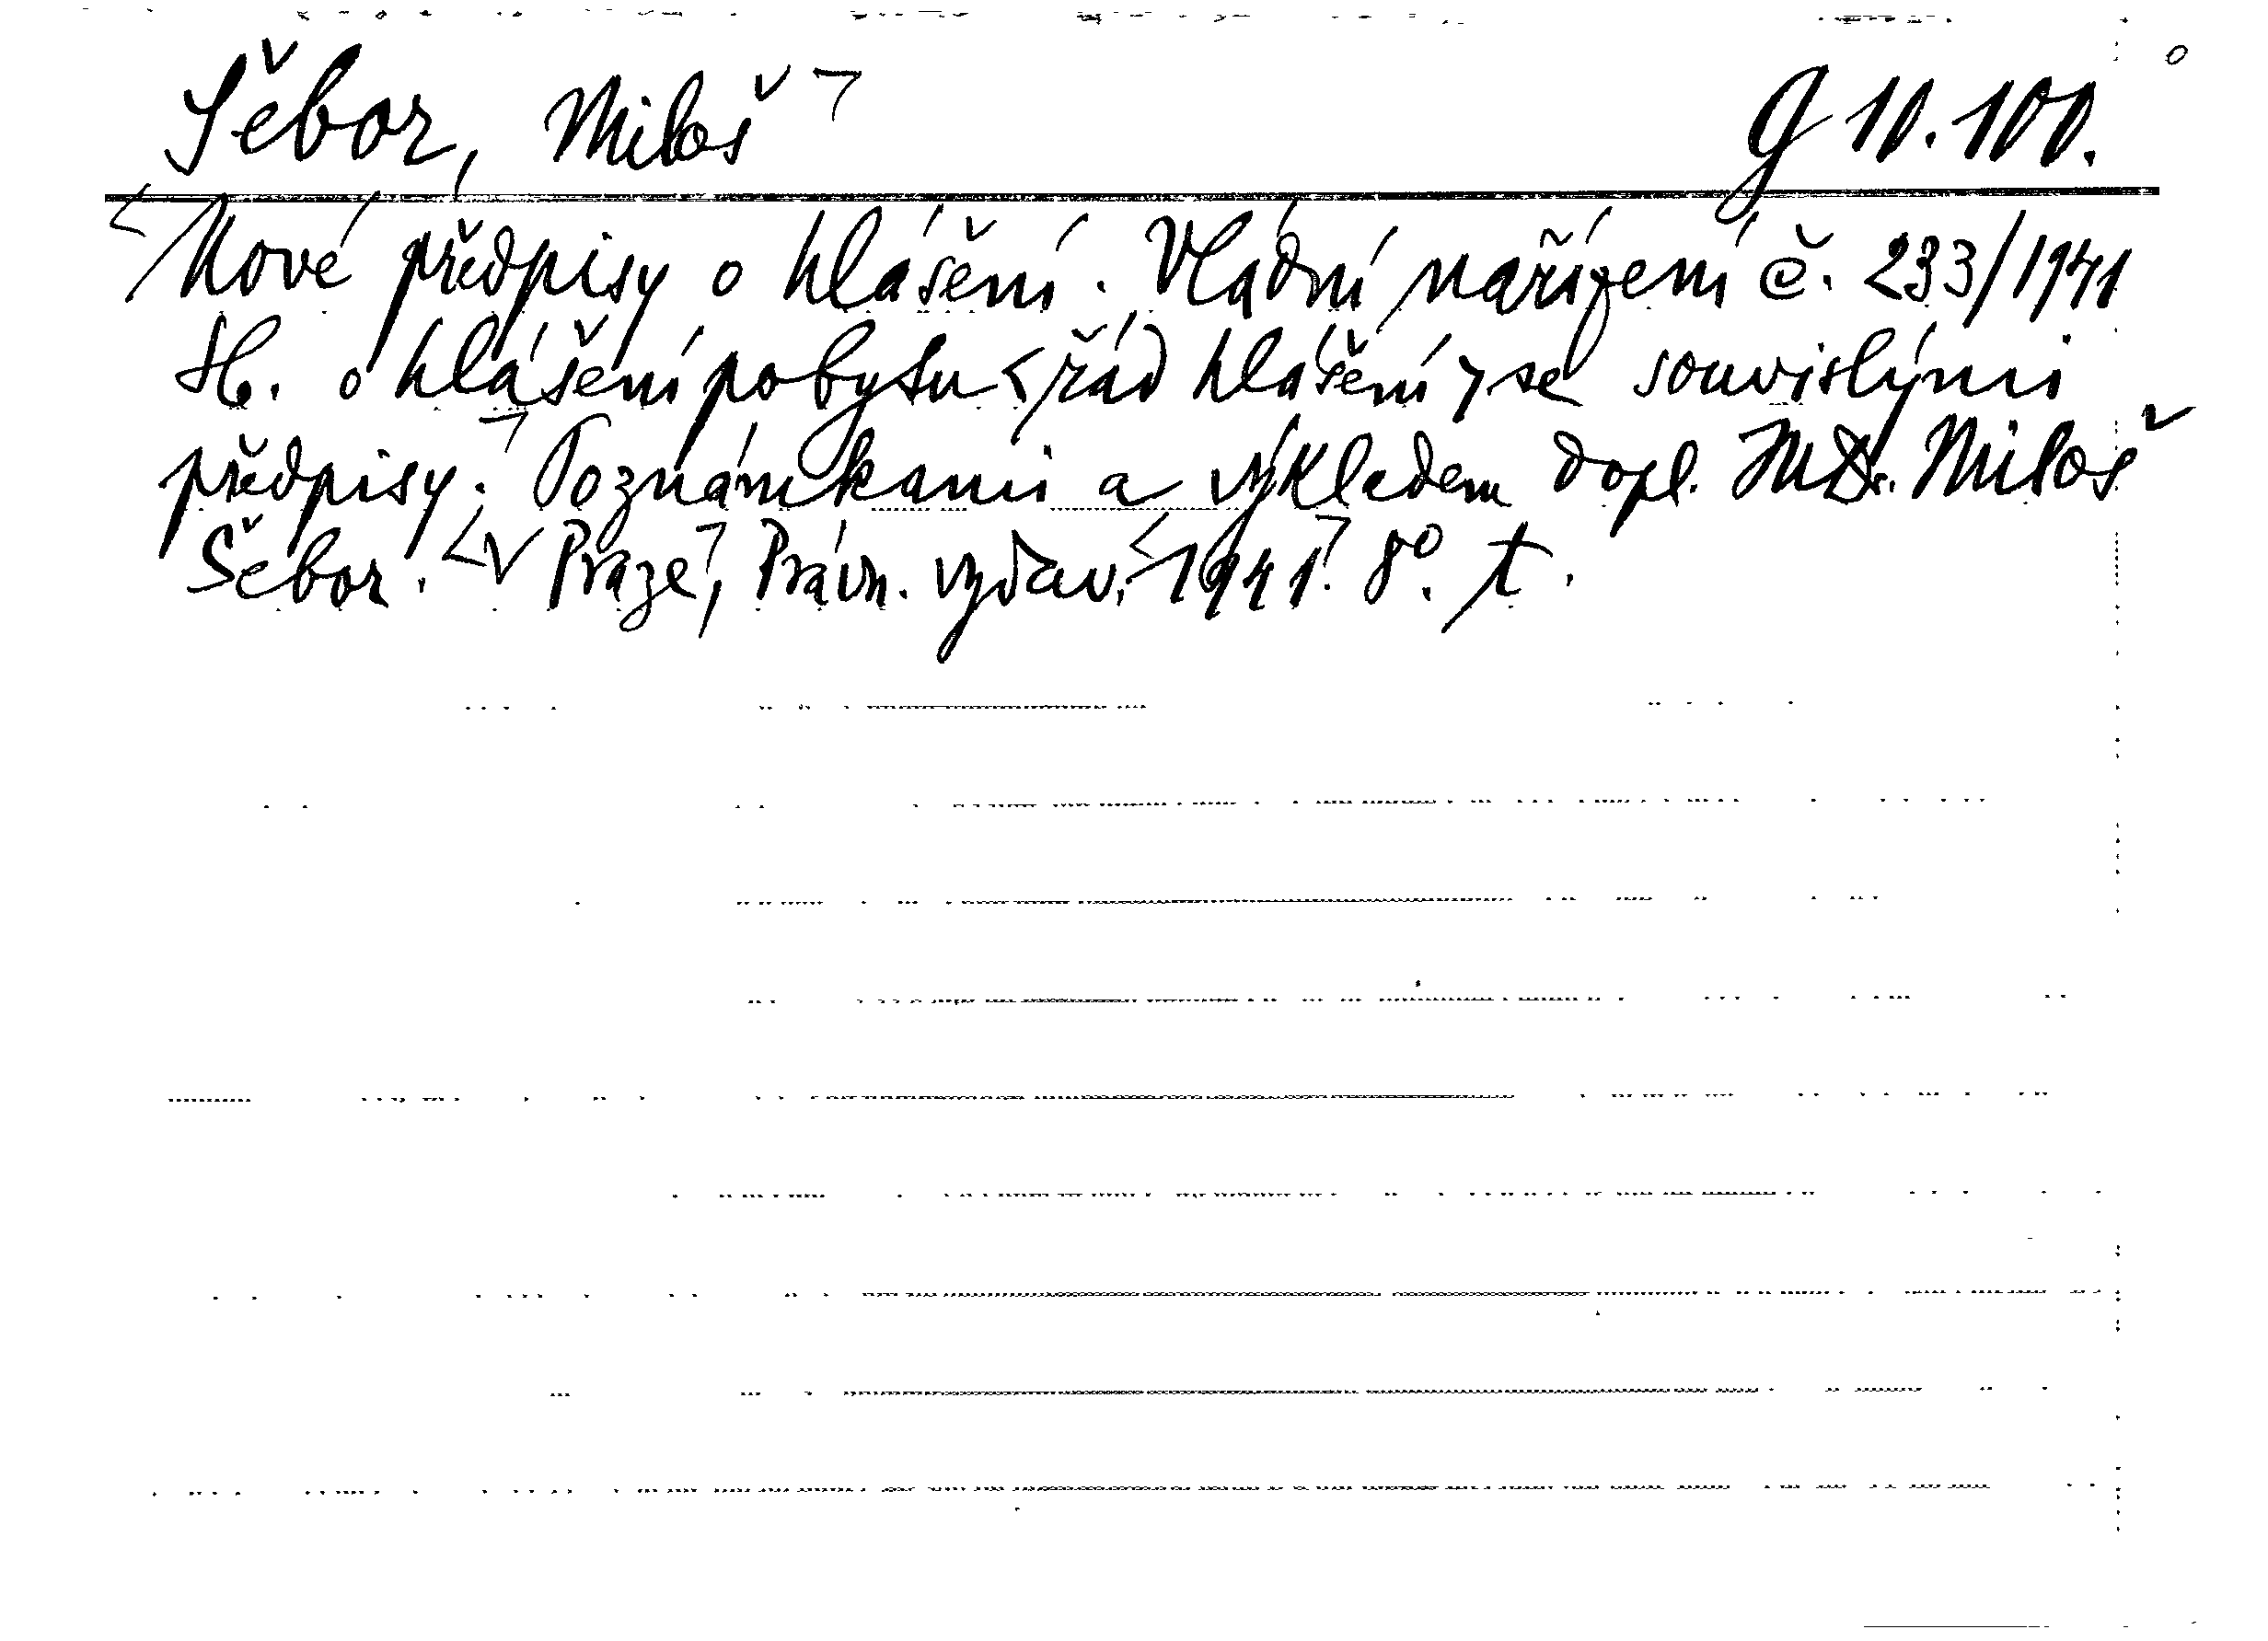 Šebor, Miloš ┐ G 10.100.
<Nové předpisy o hlášení. Vládní nařízení č. 233/1941
Sb. o hlášení pobytu <řád hlášení> se souvislými
předpisy.┐ Poznámkami a výkladem dopl. JUDr. Miloš
Šebor. <V Praze┐, Právn. vydav. <1941┐. 8°. t.